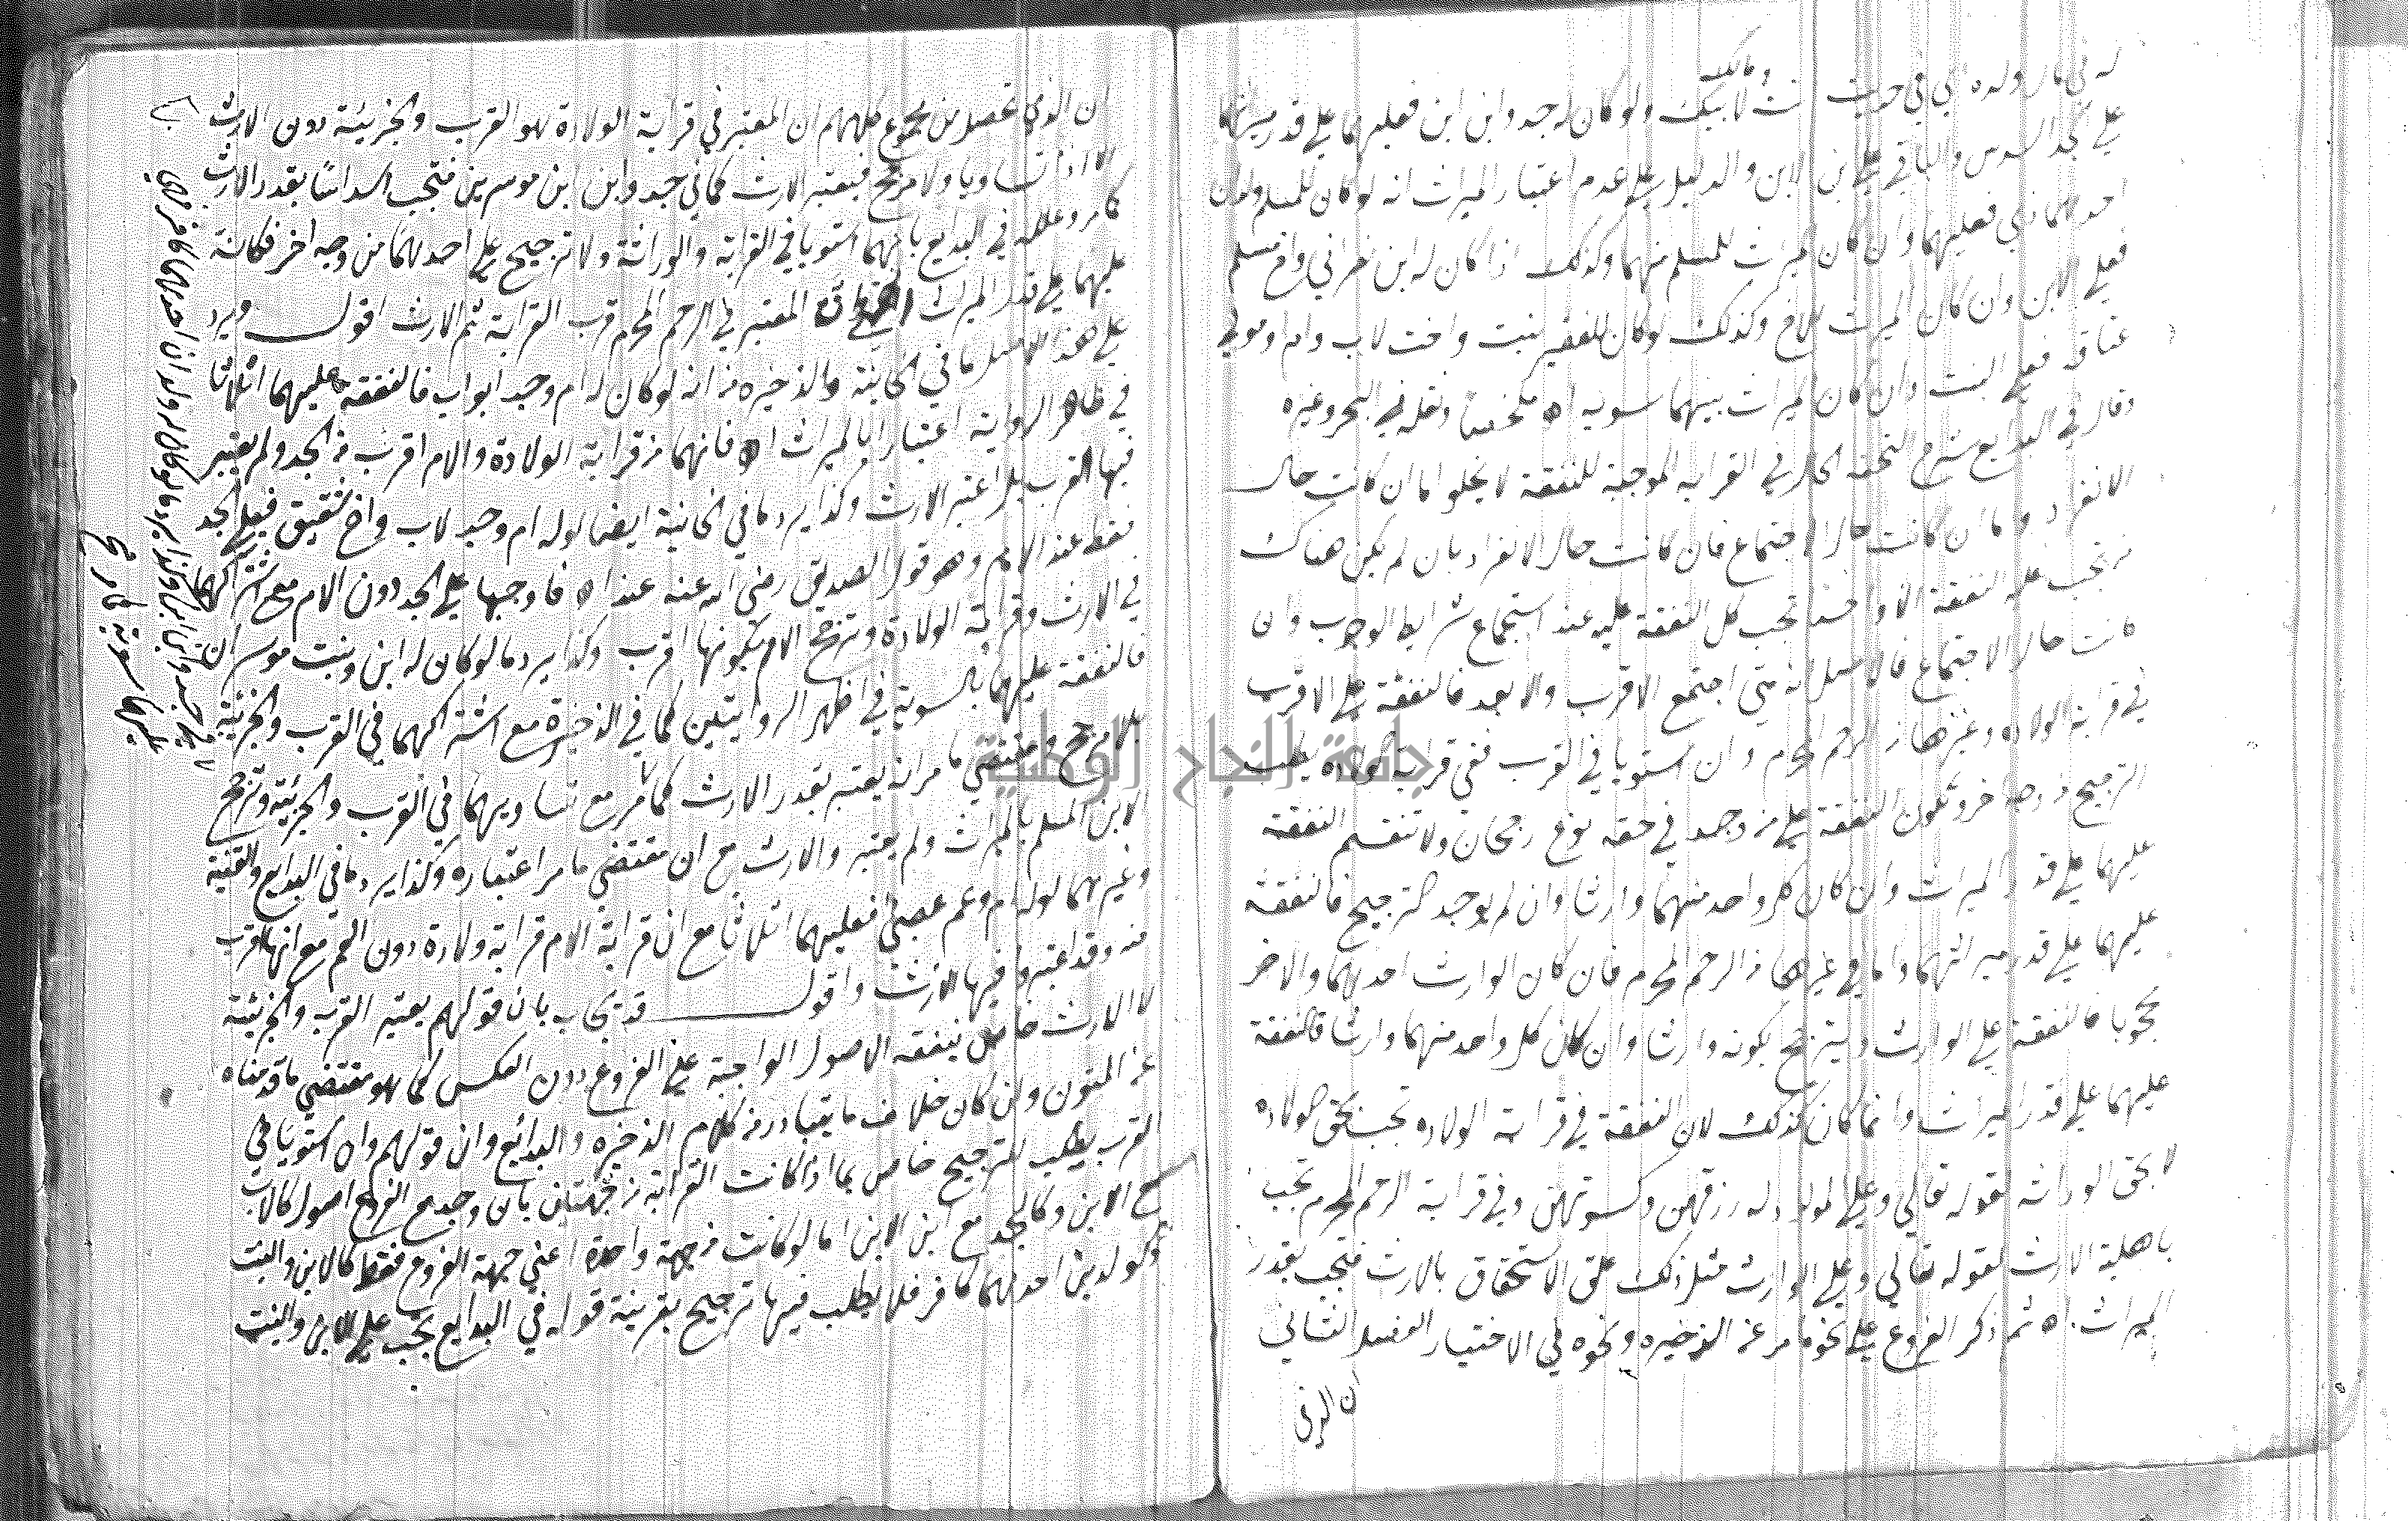 له في مال ولده اي في حديث انت ومالك لابيك ولو كان له جد وابن ابن فعليهما على قدر ميراثهما
على الجد السدس والباقي على ابن الابن والدليل على عدم اعتبار الميراث انه لو كان للمسلم ولدان
احدهما ذمي فعليهما وان كان الميراث للمسلم منهما وكذلك اذا كان له ابن نصراني واخ مسلم
فعلى الابن وان كان الميراث للاخ وكذلك لو كان للفقير بنت واخت لاب وام او مولى
عتاقة فعلى البنت وان كان الميراث بينهما سوية اه ملخصا ونقله في البحر وغيره
وقال في البدايع شرح التحفه الحال في القرابه الموجبة للنفقة لا يخلو اما ان كانت حال
الانفراد واما ان كانت حال الاجتماع فان كانت حال الانفراد بان لم يكن هناك
من تجب عليه النفقة الا واحدا تجب كل النفقة عليه عند استجماع شرايط الوجوب وان
كانت حال الاجتماع فالاصل انه متى اجتمع الاقرب والابعد فالنفقة على الاقرب
في قرابة الولاده وغيرها من الرحم المحرم وان استويا في القرب ففي قرابة الولادة يطلب
الترجيح من وجه اخر وتكون النفقة على من وجد في حقه نوع رجحان ولا تنقسم النفقة
عليهما على قدر الميراث وان كان كل واحد منهما وارثا وان لم يوجد الترجيح فالنفقة
عليهما على قدر ميراثهما واما في غيرها من الرحم المحرم فان كان الوارث احدهما والاخر
محجوبا فالنفقة على الوارث ويترجح بكونه وارثا وان كان كل واحد منهما وارثا فالنفقة
عليهما على قدر الميراث وانما كان كذلك لان النفقة في قرابة الولاده تجب بحق الولاده
لا بحق الوراثه لقوله تعالى وعلى المولود له رزقهن وكسوتهن وفي قرابة الرحم المحرم تجب
باهلية الارث لقوله تعالى وعلى الوارث مثل ذلك علق الاستحقاق بالارث فتجب بقدر
الميراث اه ثم ذكر الفروع على نحو ما مر عن الذخيره ونحوه في الاختيار الفصل الثاني
ان الذي
ان الذي تحصل من مجموع كلامهم ان المعتبر في قرابة الولادة هو القرب والجزئية دون الارث
الا اذا تساويا ولا مرجح فيعتبر الارث كما في جد وابن ابن موسرين فتجب اسداسا بقدر الارث
كما مر وعلله في البدايع بانهما استويا في القرابة والوراثة ولا ترجيح على احدهما من وجه اخر فكانت
عليهما على قدر الميراث المعتبر في الرحم المحرم قرب القرابة ثم الارث اقول ويرد
على هذا الاصل ما في الخانية والذخيره من انه لو كان له ام وجد ابو اب فالنفقة عليهما اثلاثا
في ظاهر الرواية اعتبارا بالميراث اه فانهما من قرابة الولادة والام اقرب من الجد ولم يعتبر
فيها القرب بل اعتبر الارث وكذا يرد ما في الخانية ايضا لو له ام وجد لاب واخ شقيق فعلى الجد
فقط عند الامام وهو قول الصديق رضي الله عنه عنه اه فاوجبها على الجد دون الام مع اشتراكهما
في الارث وقرابة الولادة وترجح الام بكونها اقرب وكذا يرد ما لو كان له ابن وبنت موسران
فالنفقة عليهما بالسوية في اظهر الروايتين كما في الذخيرة مع اشتراكهما في القرب والجزئية
بلا مرجح ومقتضى ما مر انه يعتبر بقدر الارث كما مر مع تساويهما في القرب والجزئية وترجح
الابن المسلم بالميراث ولم يعتبر والارث مع ان مقتضى ما مر اعتباره وكذا يرد ما في البدايع والقنية
وغيرهما لو له ام وعم عصبي فعليهما اثلاثا مع ان قرابة الام قرابة ولادة دون العم مع انها اقرب
منه وقد اعتبروا فيها الارث واقول قد يجاب بان قولهم يعتبر القرب والجزئية
لا الارث خاص بنفقه الاصول الواجبة على الفروع دون العكس كما هو مقتضى ما قدمناه
عن المتون وان كان خلاف ما يتبادر من كلام الذخيره والبدائع وان قولهم وان استويا في
القرب يطلب الترجيح خاص بما اذا كانت القرابة من جهتان بان وجد مع الفروع اصول كالاب
مع الابن وكالجد مع ابن الابن اما لو كانت من جهة واحدة اعني جهة الفروع فقط كالابن والبنت
وكولدين احدهما كافر فلا يطلب فيها ترجيح بقرينة قوله في البدايع تجب على الابن والبنت